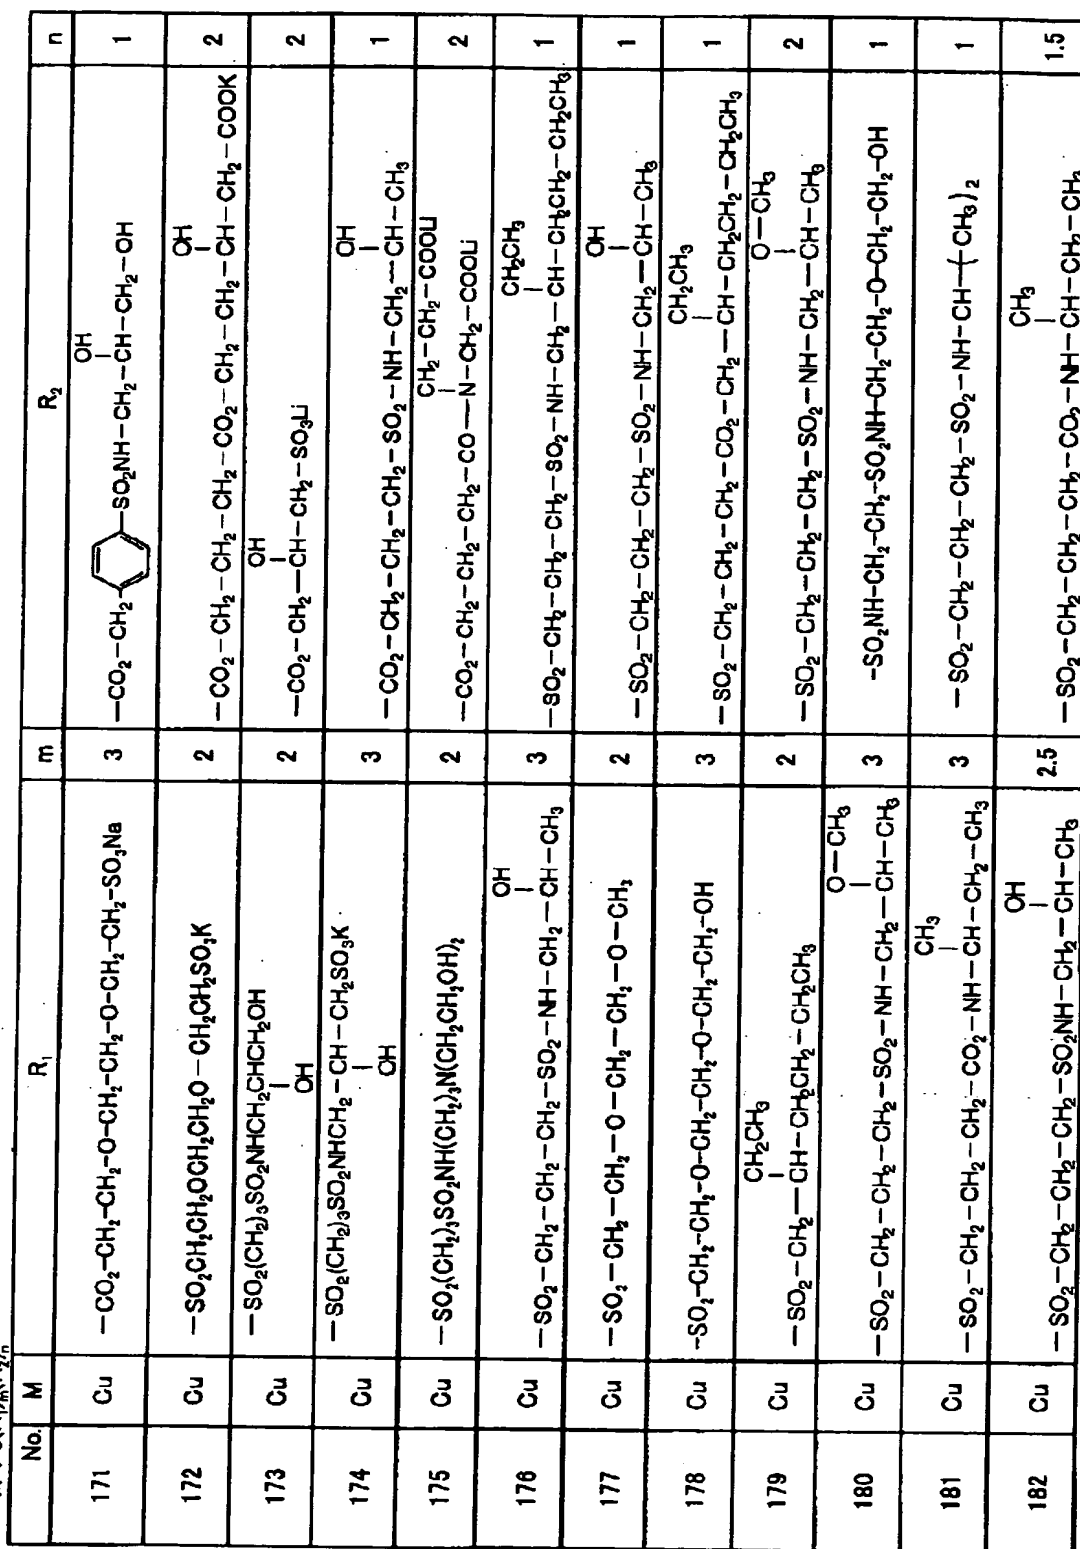 No. M R₁ m R₂ n
171 Cu —CO₂-CH₂-CH₂-O-CH₂-CH₂-O-CH₂-CH₂-SO₃Na 3 —CO₂-CH₂ SO₂NH-CH₂-CH-CH₂-OH OH 1
172 Cu —SO₂CH₂CH₂OCH₂CH₂O-CH₂CH₂SO₃K 2 —CO₂-CH₂-CH₂-CH₂-CO₂-CH₂-CH₂-CH-CH₂-COOK OH 2
173 Cu —SO₂(CH₂)₃SO₂NHCH₂CHCH₂OH OH 2 —CO₂-CH₂-CH-CH₂-SO₃Li OH 2
174 Cu —SO₂(CH₂)₃SO₂NHCH₂-CH-CH₂SO₃K OH 3 —CO₂-CH₂-CH₂-CH₂-SO₂-NH-CH₂-CH-CH₃ OH 1
175 Cu —SO₂(CH₂)₃SO₂NH(CH₂)₃N(CH₂CH₂OH)₂ 2 —CO₂-CH₂-CH₂-CH₂-CO-N-CH₂-COOLi CH₂-CH₂-COOLi 2
176 Cu —SO₂-CH₂-CH₂-CH₂-SO₂-NH-CH₂-CH-CH₃ OH 3 —SO₂-CH₂-CH₂-CH₂-SO₂-NH-CH₂-CH-CH₂CH₂-CH₂CH₃ CH₂CH₃ 1
177 Cu —SO₂-CH₂-CH₂-O-CH₂-CH₂-O-CH₃ 2 —SO₂-CH₂-CH₂-CH₂-SO₂-NH-CH₂-CH-CH₃ OH 1
178 Cu —SO₂-CH₂-CH₂-O-CH₂-CH₂-O-CH₂-CH₂-OH 3 —SO₂-CH₂-CH₂-CH₂-CO₂-CH₂-CH-CH₂CH₂-CH₂CH₃ CH₂CH₃ 1
179 Cu —SO₂-CH₂-CH-CH₂CH₂-CH₂CH₃ CH₂CH₃ 2 —SO₂-CH₂-CH₂-CH₂-SO₂-NH-CH₂-CH-CH₃ O-CH₃ 2
180 Cu —SO₂-CH₂-CH₂-CH₂-SO₂-NH-CH₂-CH-CH₃ O-CH₃ 3 -SO₂NH-CH₂-CH₂-SO₂NH-CH₂-CH₂-O-CH₂-CH₂-OH 1
181 Cu —SO₂-CH₂-CH₂-CH₂-CO₂-NH-CH-CH₂-CH₃ CH₃ 3 —SO₂-CH₂-CH₂-CH₂-SO₂-NH-CH-(CH₃)₂ 1
182 Cu —SO₂-CH₂-CH₂-CH₂-SO₂NH-CH₂-CH-CH₃ OH 2.5 —SO₂-CH₂-CH₂-CH₂-CO₂-NH-CH-CH₂-CH₃ CH₃ 1.5